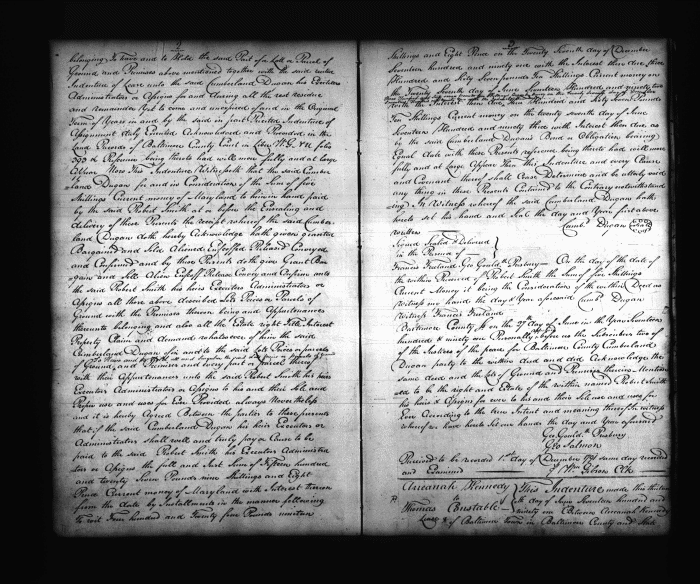 2
belonging To have and to Hold the said Part of a Lott or Parcel of
Ground and Premises above mentioned together with the said recited
Indenture of Lease unto the said Cumberland Dugan his Executors
Administrators or Assigns for and during all the rest residue
and remainder Yet to come and unexpired of and in the Original
Term of Years in and by the said in part Recited Indenture of
Assignment duly Executed Acknowledged and Recorded in the
Land Records of Baltimore County Court in Liber W.G. folio
Reference being thereto had will more fully and at large
Appear Now This Indenture Witnesseth that the said Cumber
land Dugan for and in Consideration of the Sum of five
Shillings Current money of Maryland to him in hand paid
by the said Robert Smith at or before the Ensealing and
delivery of these Presents the receipt whereof the said Cumber
land Dugan doth hereby Acknowledge hath given granted
Bargained and Sold Aliened Enfeoffed Released Conveyed
and Confirmed and by these Presents doth give Grant Bar
gain and Sell Alien Enfeoff Release Convey and Confirm unto
the said Robert Smith his heirs Executors Administrators or
Assigns all those above described Lots Pieces or Parcels of
Ground with the Premises thereon being and Appurtenances
thereunto belonging and also all the Estate right Title Interest
Property Claim and demand whatsoever of him the said
Cumberland Dugan of in and to the said Lots Pieces or parcels
of Ground and Premises and every part or Parcel thereof
with their Appurtenances unto the said Robert Smith his heirs
Executors Administrators or Assigns to his and their Sole and
Proper use and uses for Ever Provided always Nevertheless
and it is hereby Agreed Between the parties to these presents
that if the said Cumberland Dugan his heirs Executors or
Administrators shall well and truly pay or Cause to be
paid to the said Robert Smith his Executors Administra
tors or Assigns the full and Just Sum of Fifteen hundred
and twenty Seven Pounds nine Shillings and Eight
Pence Current money of Maryland with Interest thereon
from the date by Installments in the manner following
to wit Four hundred and Twenty five Pounds nineteen
Shillings and Eight Pence on the Twenty Seventh day of December
Seventeen hundred and ninety one with the Interest then due five
Hundred and Sixty Seven pounds Ten Shillings Current money on
the Twenty Seventh day of June Seventeen Hundred and ninety two
with the Interest then due Five Hundred and Sixty Seven Pounds
Ten Shillings Current money on the twenty seventh day of June
Seventeen Hundred and ninety three with Interest then due as
by the said Cumberland Dugans Bond or Obligation bearing
Equal date with these Presents reference being thereto had will more
fully and at large Appear Then this Indenture and every Clause
and Covenant thereof shall Cease Determine and be utterly void
any thing in these Presents Contained to the Contrary notwithstand
ing In Witness whereof the said Cumberland Dugan hath
hereto set his hand and Seal the day and Year first above
written Cumbd Dugan (Seal)
Signed Sealed & Delivered
in the Presence of
Francis Freeland Geo Gouldth Presbury
On the day of the date of
the within Received of Robert Smith the Sum of five Shillings
Current Money it being the Consideration of the within Deed as
Witness my hand the day & Year aforesaid Cumbd Dugan
Witness Francis Freeland
Baltimore County Sc on the 27th day of June in the Year Seventeen
hundred & ninety one Personally before us the Subscribers two of
of the Justices of the peace for Baltimore County Cumberland
Dugan party to the within deed and did Acknowledge the
same deed and the lots of Ground and Premises therein Mention
ed to be the right and Estate of the within named Robert Smith
his heirs & Assigns for ever to his and their Sole use and uses for
Ever According to the true Intent and meaning thereof In witness
whereof we have hereto Set our hands the day and Year aforesaid
Geo Gouldth Presbury
Geo Salmon
Received to be recorded 1st day of December 1791 same day recorded
and Examined Wm Gibson Clk
Aweanah Kennedy
to
Thomas Constable
This Indenture made this thirteen
th day of June Seventeen hundred and
ninety one Between Aweanah Kennedy
of Baltimore Town in Baltimore County and State